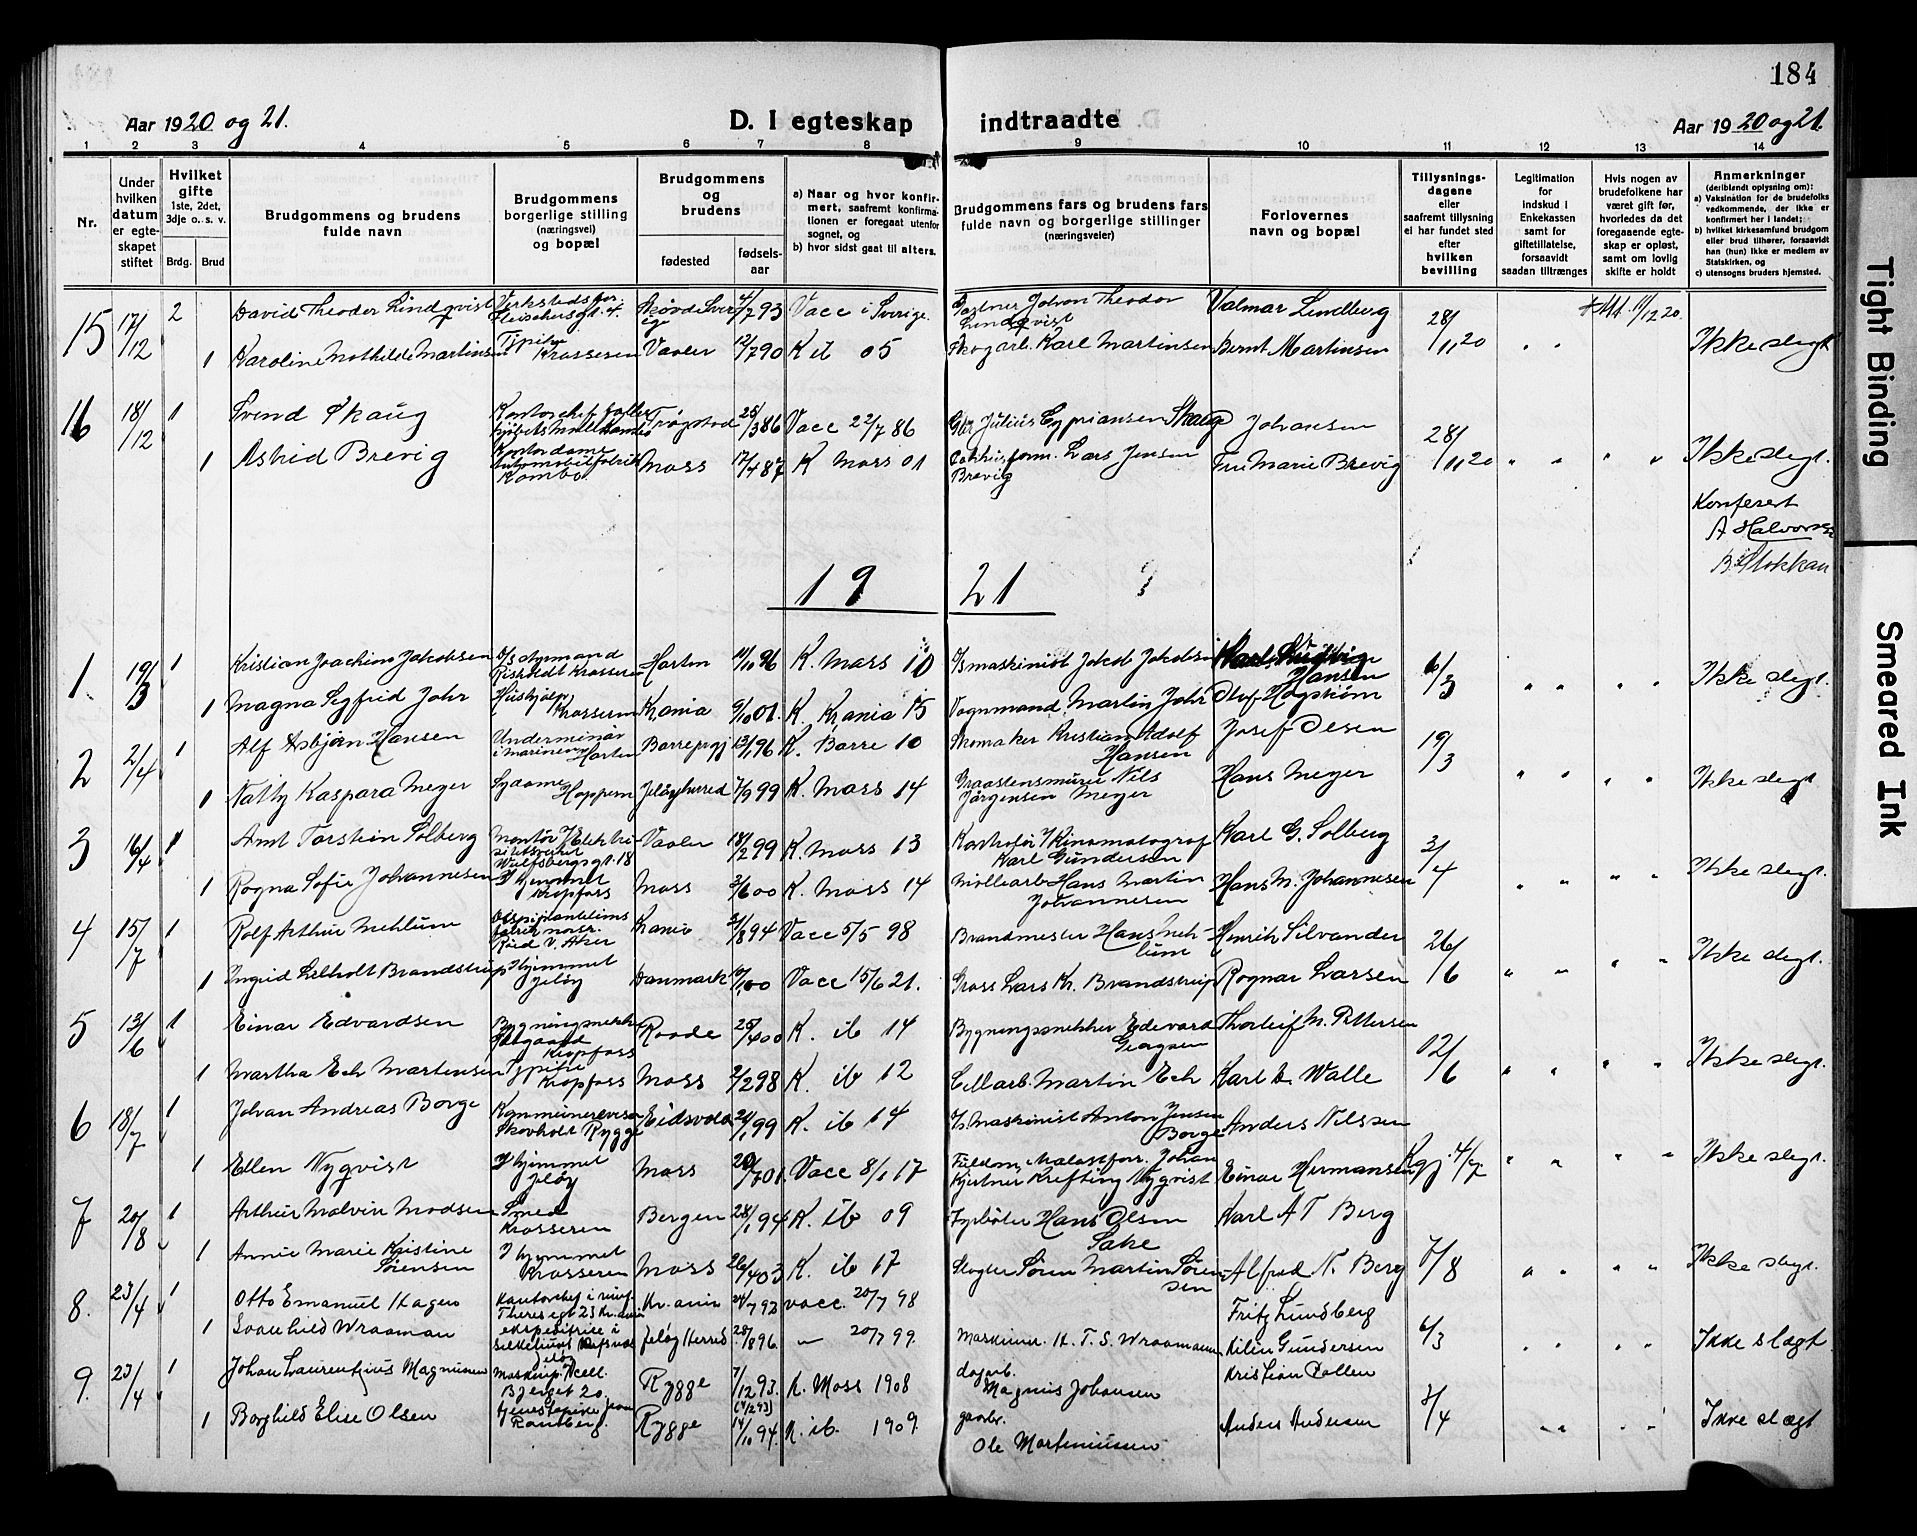 184
Aar 1920 og 21.
D. I egteskap indtraadte
Aar 1920 og 21.
1 2 3 4 5 6 7 8 9 10 11 12 13 14
Nr.
Under hvilken datum er egteskapet stiftet
Hvilket gifte 1ste, 2det, 3dje o. s. v.
Brdg. Brud
Brudgommens og brudens fulde navn
Brudgommens borgerlige stilling (næringsvei) og bopæl
Brudgommens og brudens
fødested
fødselsaar
a) Naar og hvor konfirmert, saafremt konfirmationen er foregaat utenfor sognet, og
b) hvor sidst gaat til alters.
Brudgommens fars og brudens fars fulde navn og borgerlige stillinger (næringsveier)
Forlovernes navn og bopæl
Tillysningsdagene eller saafremt tillysning ei har fundet sted efter hvilken bevilling
Legitimation for indskud i Enkekassen samt for giftetillatelse, forsaavidt saadan tiltrænges
Hvis nogen av brudefolkene har været gift før, hvorledes da det foregaaende egteskap er opløst, samt om lovlig skifte er holdt
Anmerkninger (deriblandt oplysning om):
a) Vaksination for de brudefolks vedkommende, der ikke er konfirmert her i landet;
b) hvilket kirkesamfund brudgom eller brud tilhører, forsaavidt han (hun) ikke er medlem av Statskirken, og
c) utensogns bruders hjemsted.
15 17/12 2 David Theodor Lindqvist 4/7 93 Vacc i Sverige. Gartner Johan Theodor Lindqvist Valmar Lundberg 28/11 20
1 Karoline Mathilde Martinsen Krosseren Vaaler 12/7 90 K ib 05 Skogarb. Karl Martinsen Bernt Martinsen Ikke slegt
16 18/12 1 Svend Skaug Trøgstad 25/3 86 Vacc 22/7 86 Gbr Julius Cypriansen Skaug Johansen 28/11 20
1 Astrid Brevig Kontordame Automobilfabrik Kambo Moss 17/4 87 K Moss 01 Lars Jensen Brevig Fru Marie Brevig Ikke slegt.
Konferert
A Halvorsen
B. Stokkan
19 21
1 19/3 1 Kristian Joachim Jakobsen Styrmand Krosseren Horten 11/10 96 K. Moss 10 maskinist Jakob Jakobsen Karl Ludvig Hansen 6/3
1 Magna Sigfrid Johr Hushjelp Krosseren Krania 9/10 01. K. Krania 15 Vognmand Martin Johr Olof Høgstrøm Ikke slegt.
2 2/4 1 Alf Asbjørn Hansen Underminør i marinen Horten Borre 13/1 96 K. Borre 10 Skomaker Kristian Adolf Hansen Josef Olsen 19/3
1 Natty Kaspara Meyer Sydame Hoppern Jeløy herred 7/9 99 K. Moss 14 Nils Jørgensen Meyer Hans Meyer Ikke slegt
3 16/4 1 Arnt Torstein Solberg Montør Wulfsbergsgt. 18 Vaaler 18/2 99 K. Moss 13 Kinematograf Karl Gundersen Karl G. Solberg 3/4
1 Ragna Sofie Johannesen I hjemmet Kropfoss Moss 3/6 00 K. Moss 14 Møllearb Hans Martin Johannesen Hans M. Johannesen Ikke slegt.
4 15/7 1 Rolf Arthur Mehlum Krania 31/8 94 Vacc 5/5 98 Brandmester Hans Mehlum Henrik Silvander 26/6
1 Ingrid Lilholt Brandstrup I hjemmet Jeløy Danmark Vacc 15/6 21. Gross Lars Kr. Brandstrup Ragnar Larsen Ikke slegt.
5 13/6 1 Einar Edvardsen Bygningssnekker Kropfoss Raade 25/4 00 K. ib 14 Bygningssnekker Edevard Georgsen Thorleif M. Pettersen 12/6
1 Martha Ech Martensen Typife Kropfoss Moss 2/2 98 K. ib 12 Cellarb. Martin Ech Karl L. Walle Ikke slegt.
6 18/7 1 Johan Andreas Borge Skovholt Rygge Eidsvold 21/1 99 K. ib 14 maskinist Anton Jensen Borge Anders Nilssen
1 Ellen Nyqvist I hjemmet Jeløy Moss 20/7 01. Vacc 8/1 17 Johan Krefting Nyqvist Einar Hermansen Kgj. 4/7 Ikke slegt.
7 20/8 1 Arthur Malvin Madsen Smed Krosseren Bergen 28/1 94 K. ib 09 Fyrbøter Hans Olsen Sake Karl A T Berg
1 Annie Marie Kristine Sørensen I hjemmet Krosseren Moss 26/4 03 K. ib 17 Slagter Søren Martin Sørensen Alfred N. Berg 7/8 Ikke slegt.
8. 23/4 1 Otto Emanuel Hagen Theresesgt 23 Kr.ania Kr.ania 24/7 93 vacc. 20/7 98 Fritz Lundberg
1 Svanhild Wraaman ekspeditrice i Jeløy Herred 28/8 96. " 20/7 99. Maskinm. H. T. S. Wraamann Gundersen 6/3 Ikke slægt
9. 23/4 1 Johan Laurentzius Magnussen Bjerget 20. Rygge 7/12 93. (4/2 93) K. Moss 1908 dagarb. Magnus Johansen Kristian Pollen
1 Borghild Elise Olsen tjenestepike Rygge 14/10 94. K. ib. 1909. gaarbr. Ole Martiniussen Anders Andersen 3/4 Ikke slægt
Tight Binding
Smeared Ink